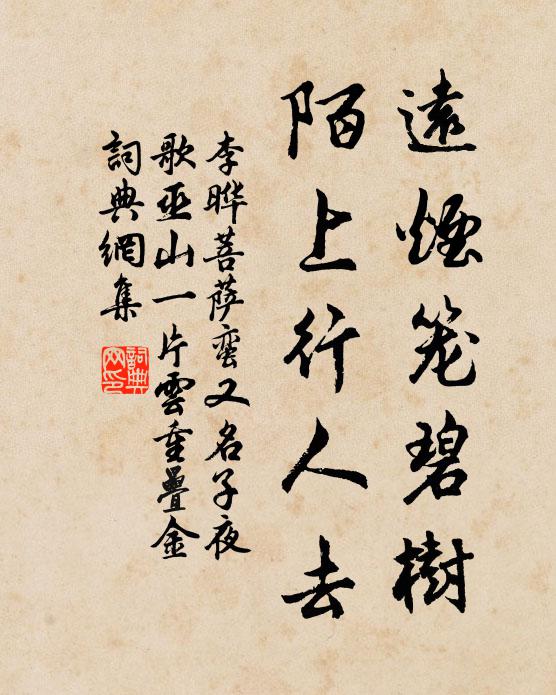 遠煙笼碧樹
陌上行人去
李晔菩萨蛮又名子夜
歌巫山一片雲重疊金
詞典網集
詞典網印